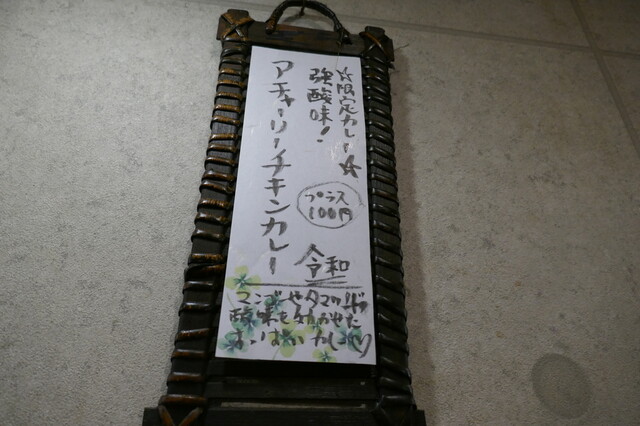 ☆限定カレー☆
強酸味!
アチャーリーチキンカレー
プラス
100円
令和
マンゴやタマリンド
酸味を効かせた